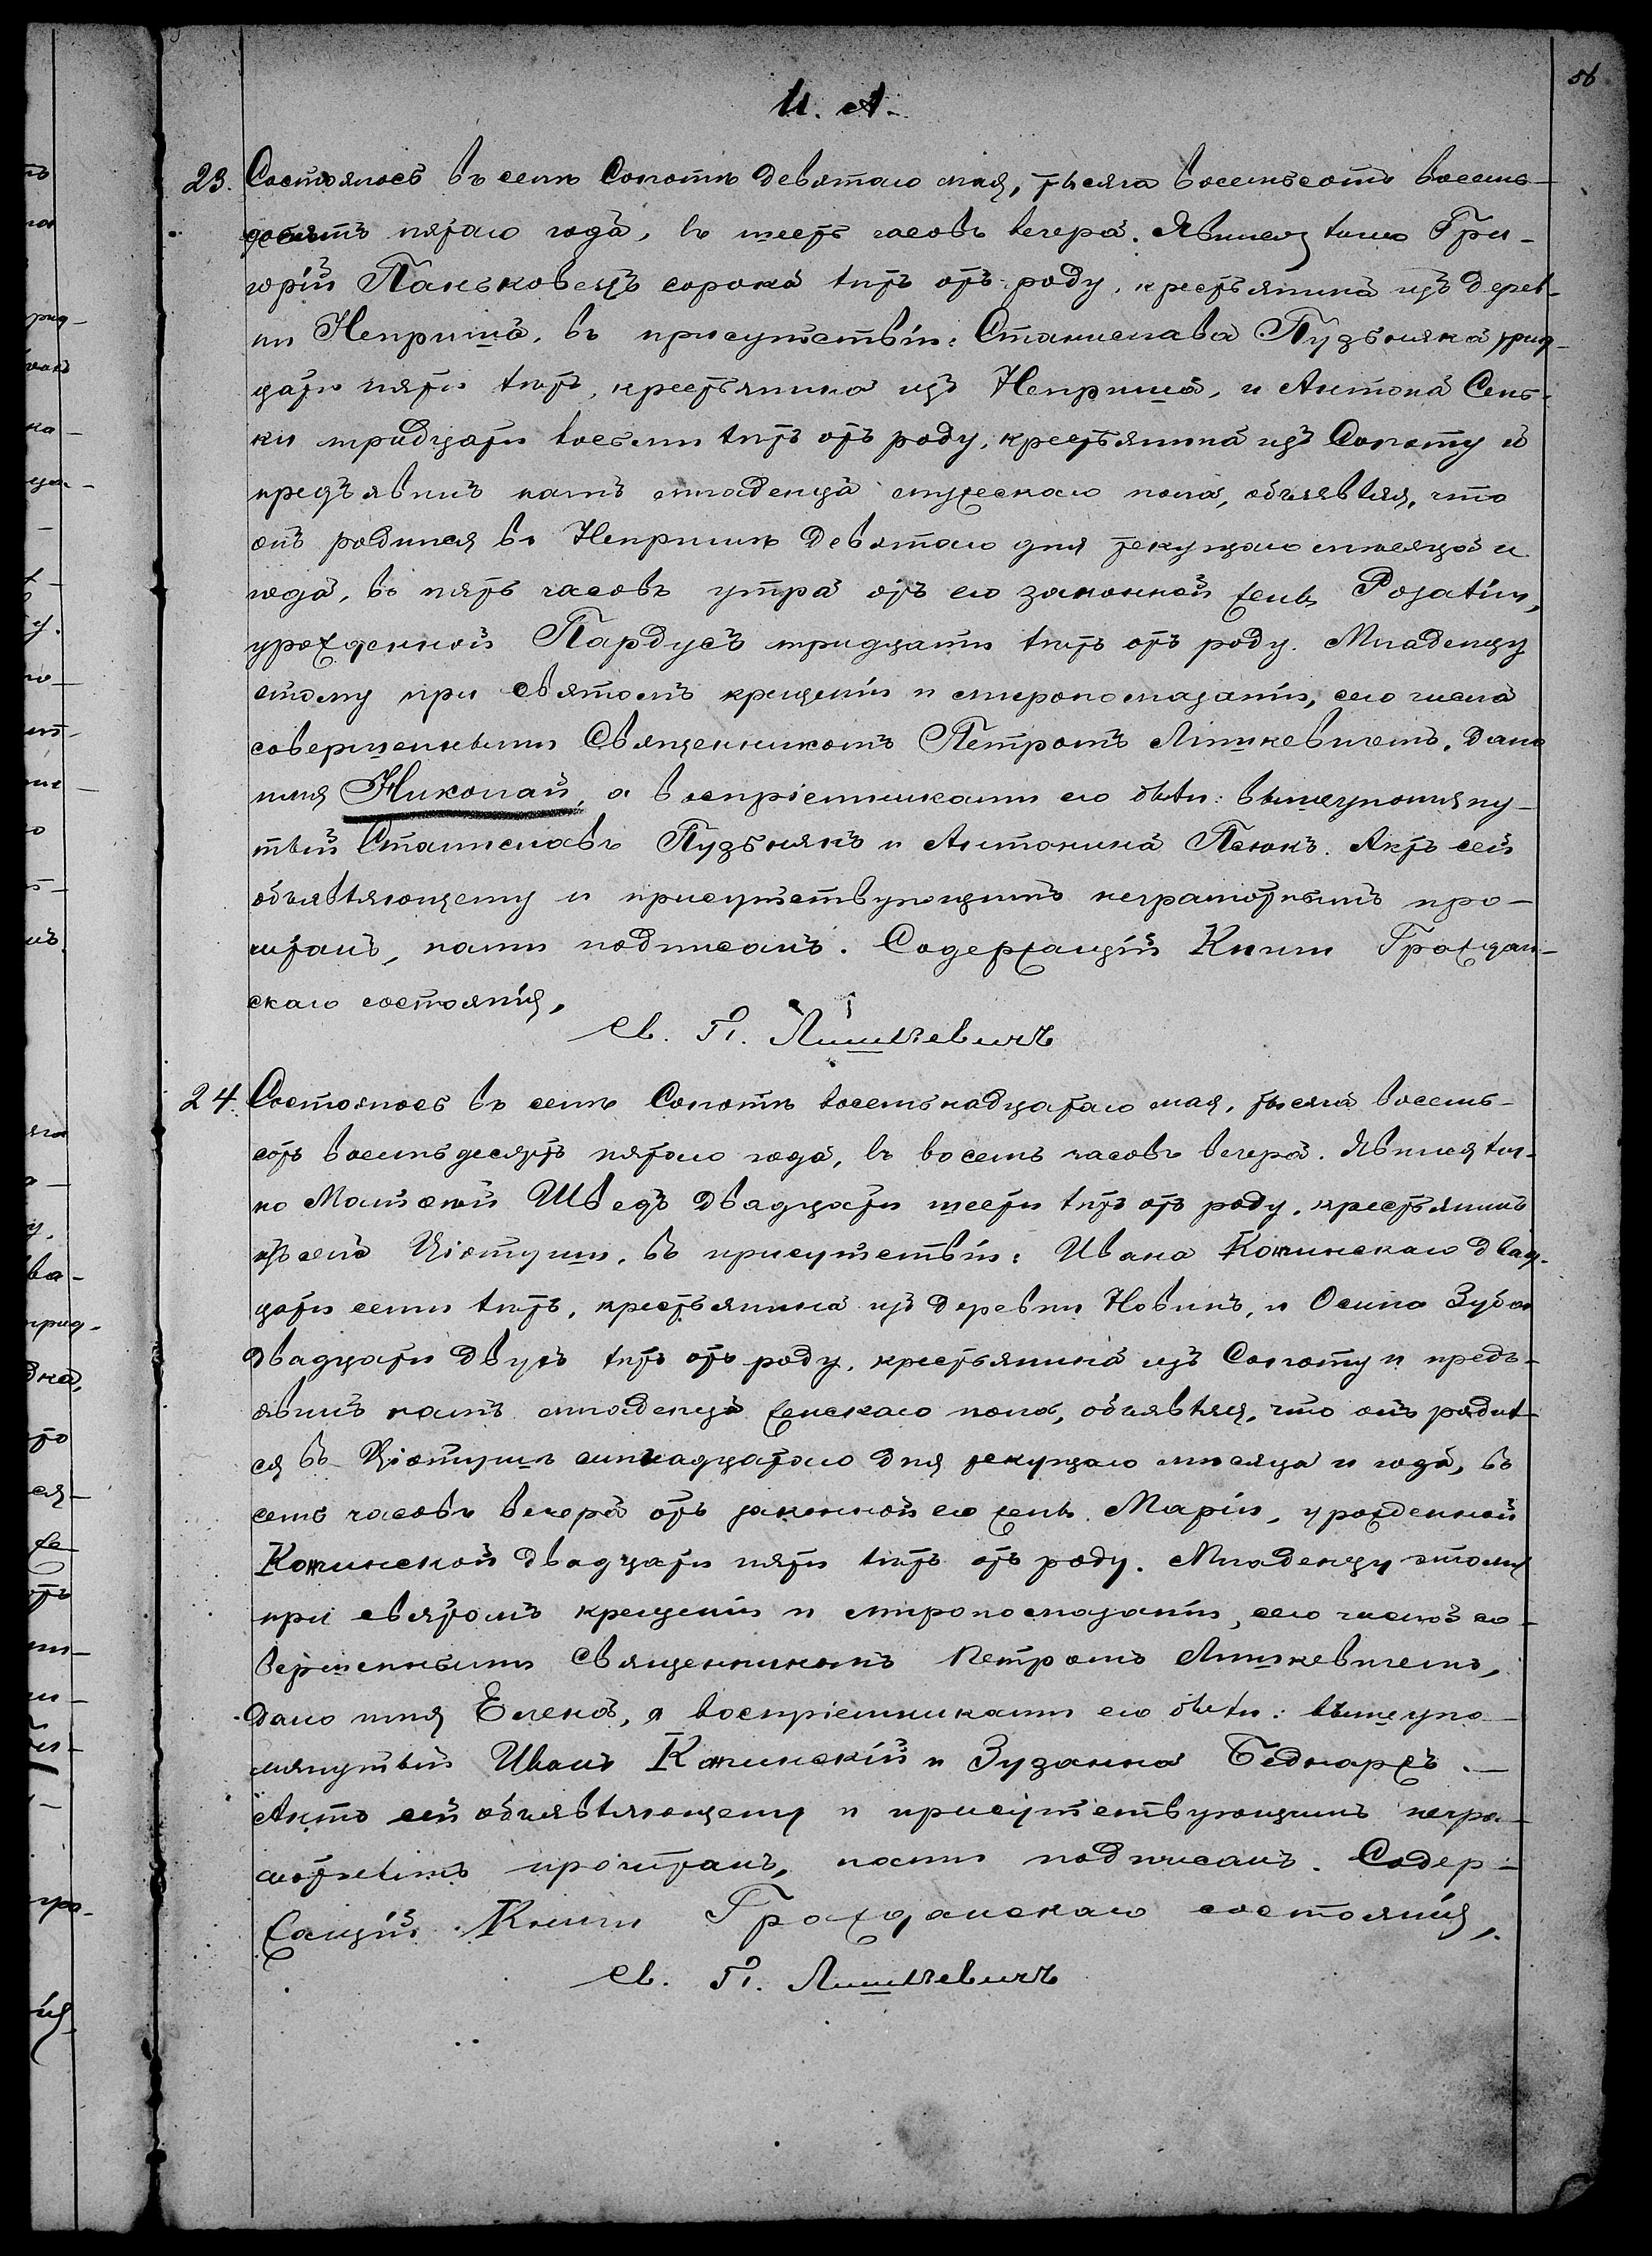 56
И. А.
23. Состоялось въ селѣ Сопотѣ девятаго мая, тысяча восемьсотъ восемь-
десятъ пятаго года, въ шесть часовъ вечера. Явился лично Гри-
горій Паньковецъ сорока лѣтъ отъ роду, крестьянинъ изъ дерев-
ни Неприша, въ присутствіи: Станислава Пузьняка трид-
цати пяти лѣтъ, крестьянина изъ Неприша, и Антона Сень-
ки тридцати восьми лѣтъ отъ роду, крестьянина изъ Сопоту и
предъявилъ намъ младенца мужескаго пола, объявляя, что
онъ родился въ Непришѣ девятаго дня текущаго мѣсяца и
года, въ пять часовъ утра отъ его законной жены Розаліи,
урожденной Пардусъ тридцати лѣтъ отъ роду. Младенцу
этому при святомъ крещеніи и миропомазаніи, сего числа
совершенными Священникомъ Петромъ Ляшкевичемъ, дано
имя Николай, а воспріемниками его были: вышеупомяну-
тый Станиславъ Пузьнякъ и Антонина Псюкъ. Актъ сей
объявляющему и присутствующимъ неграмотнымъ про-
читанъ, нами подписанъ. Содержащій Книги Граждан-
скаго состоянія,
Св. П. Ляшкевичъ
24. Состоялось въ селѣ Сопотѣ восемьнадцатаго мая, тысяча восемь-
сотъ восемьдесятъ пятаго года, въ восемь часовъ вечера. Явился лич-
но Матѳей Шведъ двадцати шести лѣтъ отъ роду, крестьянинъ
изъ села Ціотуши, въ присутствіи: Ивана Кожинскаго двад-
цати семи лѣтъ, крестьянина изъ деревни Новинъ, и Осипа Зубая
двадцати двухъ лѣтъ отъ роду, крестьянина изъ Сопоту и предъ-
явилъ намъ младенца женскаго пола, объявляя, что онъ родил-
ся въ Ціотушѣ семнадцатаго дня текущаго мѣсяца и года, въ
семь часовъ вечера отъ законной его жены Маріи, урожденной
Кожинской двадцати пяти лѣтъ отъ роду. Младенцу этому
при святомъ крещеніи и миропомазаніи, сего числа со-
вершенными Священникомъ Петромъ Ляшкевичемъ,
дано имя Елена, а воспріемниками его были: вышеупо-
мянутый Иванъ Кожинскій и Зузанна Беднаржъ. —
Актъ сей объявляющему и присутствующимъ негра-
мотнымъ прочитанъ, нами подписанъ. Содер-
жащій Книги Гражданскаго состоянія,
Св. П. Ляшкевичъ